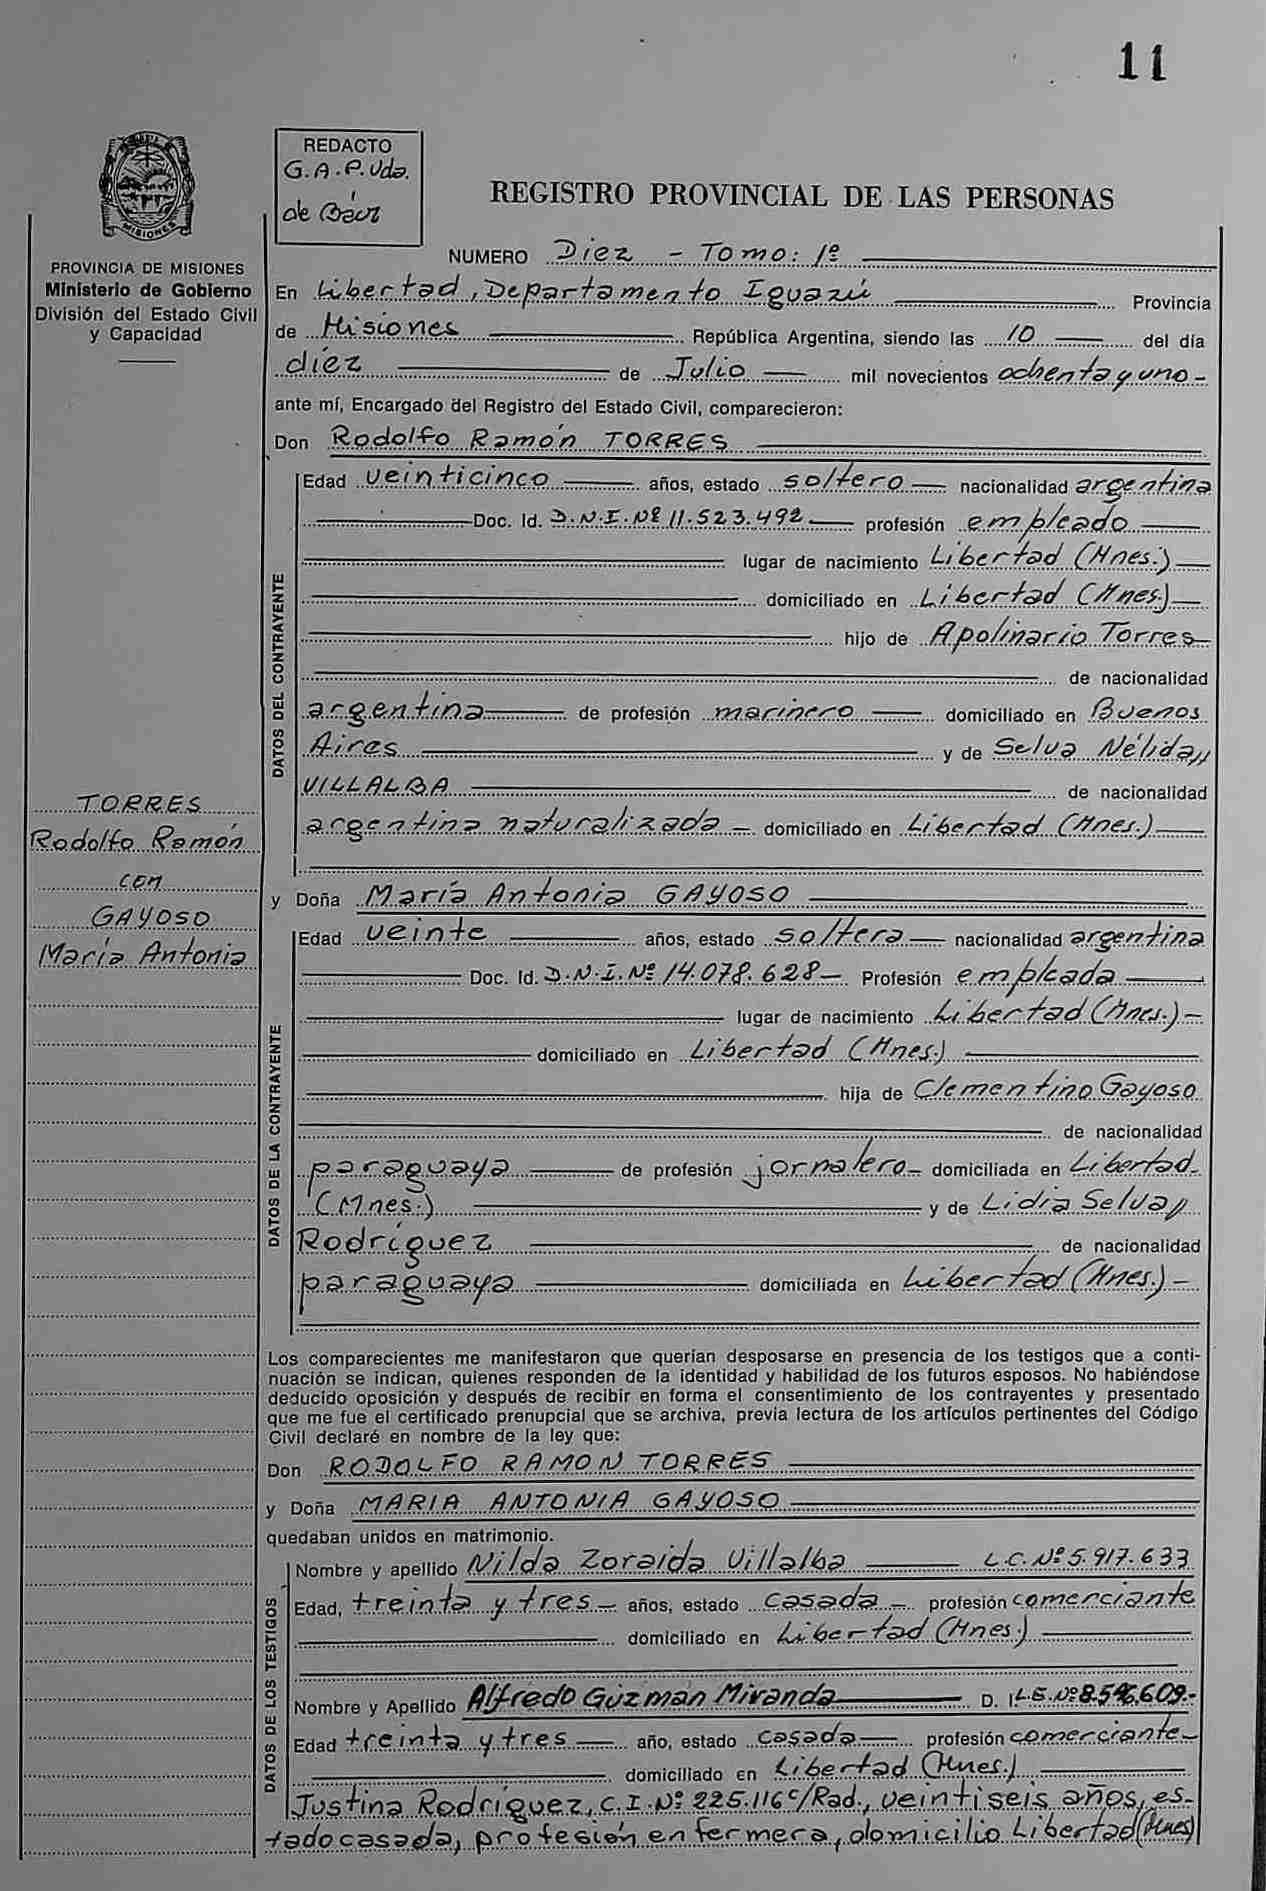 11
MISIONES
PROVINCIA DE MISIONES
Ministerio de Gobierno
División del Estado Civil
y Capacidad
REDACTO
G.A.P. Vda.
de Báez
REGISTRO PROVINCIAL DE LAS PERSONAS
NUMERO Diez - Tomo: 1º
En Libertad, Departamento Iguazú Provincia
de Misiones República Argentina, siendo las 10 del día
diez de Julio mil novecientos ochenta y uno-
ante mí, Encargado del Registro del Estado Civil, comparecieron:
Don Rodolfo Ramón TORRES
DATOS DEL CONTRAYENTE
Edad veinticinco años, estado soltero nacionalidad argentina
Doc. Id. D.N.I. Nº 11.523.492 profesión empleado
lugar de nacimiento Libertad (Mnes.)
domiciliado en Libertad (Mnes.)
hijo de Apolinario Torres
de nacionalidad
argentina de profesión marinero domiciliado en Buenos
Aires y de Selva Nélida
VILLALBA de nacionalidad
argentina naturalizada - domiciliado en Libertad (Mnes.)
TORRES
Rodolfo Ramón
con
GAYOSO
María Antonia
y Doña María Antonia GAYOSO
DATOS DE LA CONTRAYENTE
Edad veinte años, estado soltera nacionalidad argentina
Doc. Id. D.N.I. Nº 14.078.628 Profesión empleada
lugar de nacimiento Libertad (Mnes.)-
domiciliado en Libertad (Mnes.)
hija de Clementino Gayoso
de nacionalidad
paraguaya de profesión jornalero domiciliada en Libertad
(Mnes.) y de Lidia Selva
Rodríguez de nacionalidad
paraguaya domiciliada en Libertad (Mnes.)-
Los comparecientes me manifestaron que querían desposarse en presencia de los testigos que a conti-
nuación se indican, quienes responden de la identidad y habilidad de los futuros esposos. No habiéndose
deducido oposición y después de recibir en forma el consentimiento de los contrayentes y presentado
que me fue el certificado prenupcial que se archiva, previa lectura de los artículos pertinentes del Código
Civil declaré en nombre de la ley que:
Don RODOLFO RAMON TORRES
y Doña MARIA ANTONIA GAYOSO
quedaban unidos en matrimonio.
DATOS DE LOS TESTIGOS
Nombre y apellido Nilda Zoraida Villalba L.C. Nº 5.917.633
Edad, treinta y tres - años, estado casada - profesión comerciante
domiciliado en Libertad (Mnes.)
Nombre y Apellido Alfredo Guzmán Miranda D. I L.E. Nº 8.546.609.-
Edad treinta y tres año, estado casado profesión comerciante-
domiciliado en Libertad (Mnes.)
Justina Rodríguez, C.I. Nº 225.116 c/Rad., veintiseis años, es-
tado casada, profesión enfermera, domicilio Libertad (Mnes)